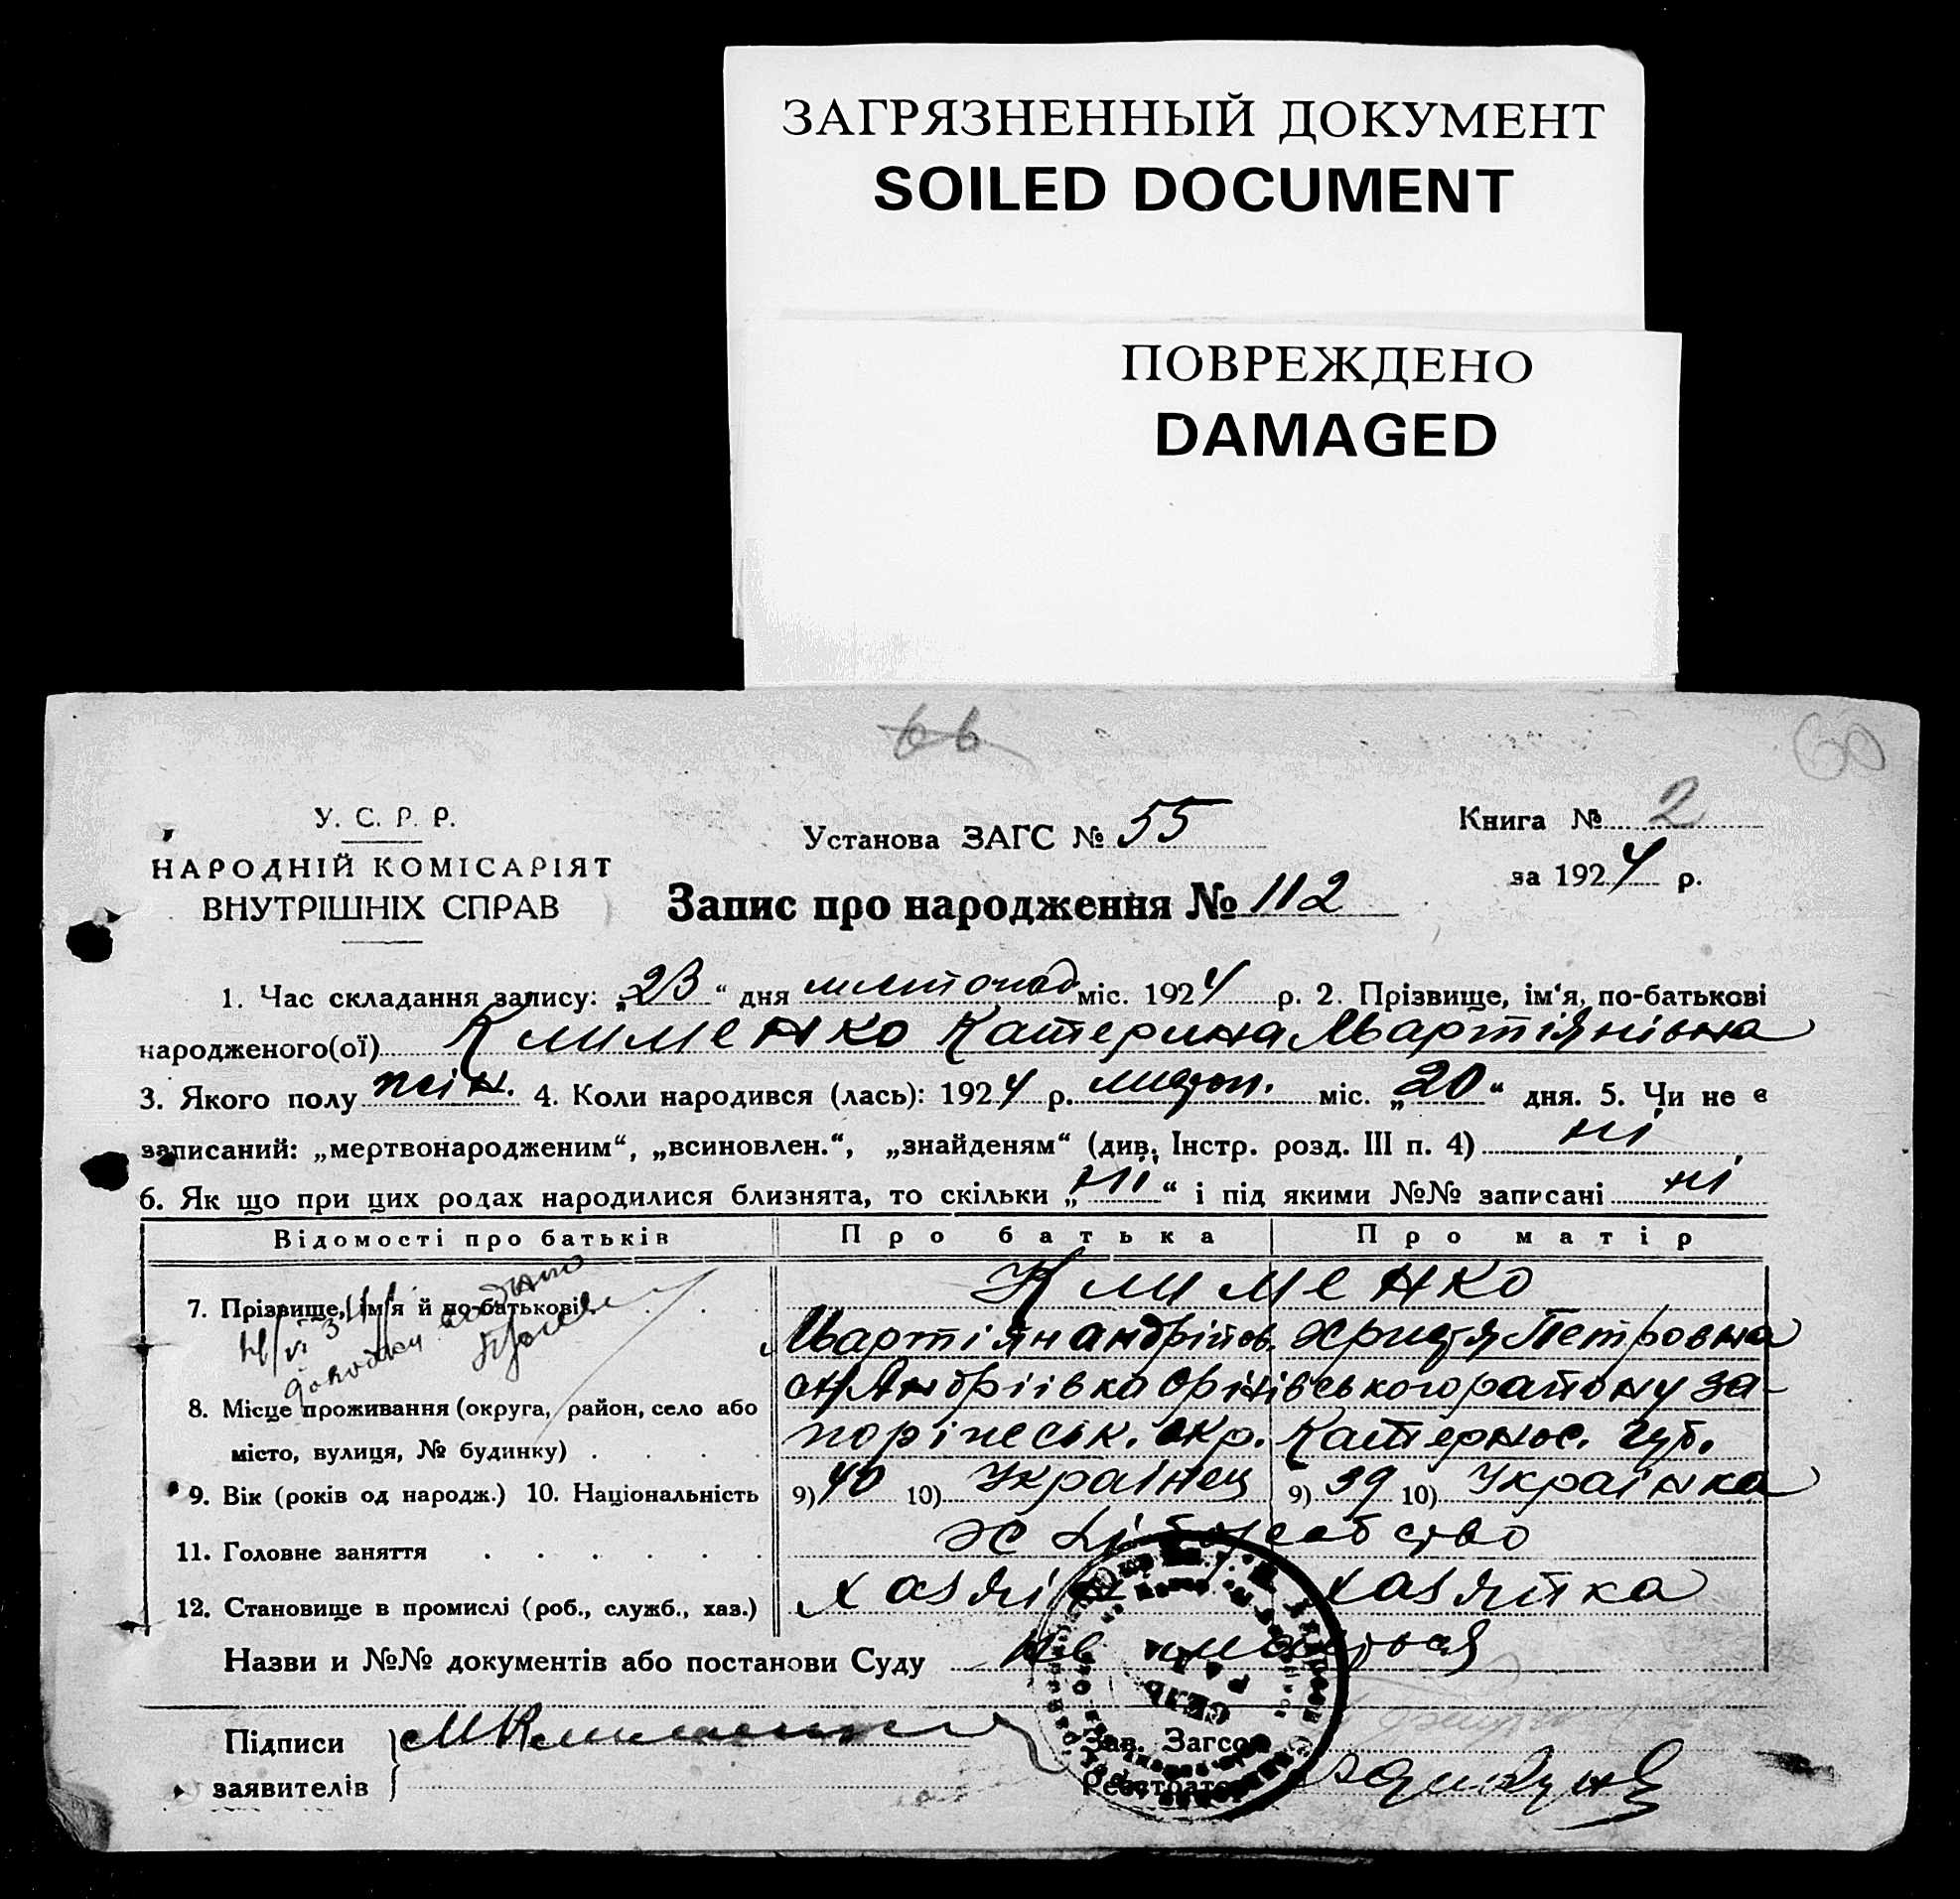 ЗАГРЯЗНЕННЫЙ ДОКУМЕНТ
SOILED DOCUMENT
ПОВРЕЖДЕНО
DAMAGED
66
60
У. С. Р. Р.
НАРОДНІЙ КОМІСАРІЯТ
ВНУТРІШНІХ СПРАВ
Установа ЗАГС № 55
Книга № 2
за 1924 р.
Запис про народження № 112
1. Час складання запису: „23“ дня листопад міс. 1924 р. 2. Прізвище, ім‘я, по-батькові
народженого(ої) Клименко Катерина Мартіянівна
3. Якого полу жін. 4. Коли народився (лась): 1924 р. листоп. міс. „20“ дня. 5. Чи не є
записаний: „мертвонародженим“, „всиновлен.“, „знайденям“ (див. Інстр. розд. III п. 4) ні
6. Як що при цих родах народилися близнята, то скільки „ні“ і під якими №№ записані ні
Відомості про батьків Про батька Про матір
7. Прізвище, ім‘я й по-батькові Клименко
Мартіян Андрійов. Христя Петровна
8. Місце проживання (округа, район, село або Андріівка Орінівського району За-
місто, вулиця, № будинку) поріжськ. окр. Катернос. губ.
9. Вік (років од народж.) 10. Національність 9) 40 10) Українец 9) 39 10) Українка
11. Головне заняття Хліборобство
12. Становище в промислі (роб., служб., хаз.) хазяін хазяйка
Назви и №№ документів або постанови Суду
Підписи МКлименко
заявителів
Зав. Загсом
Реєстратор